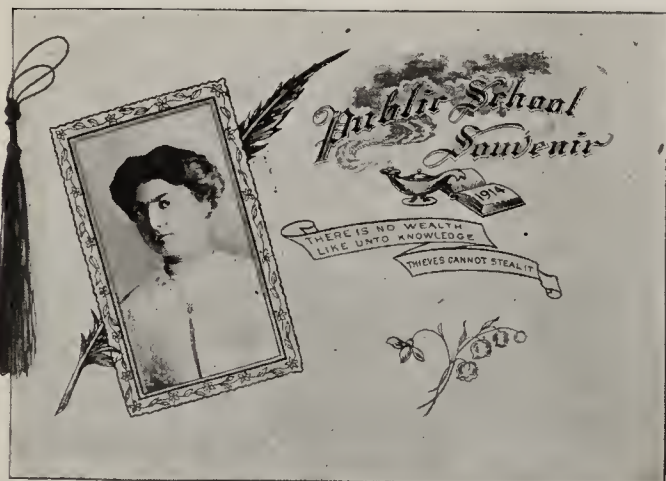 Public School
Souvenir
1914
THERE IS NO WEALTH
LIKE UNTO KNOWLEDGE
THIEVES CANNOT STEAL IT